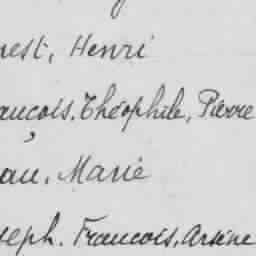 nest, Henri
ancois, Théophile, Pierre
ean, Marie
oseph, Francois, Arsène